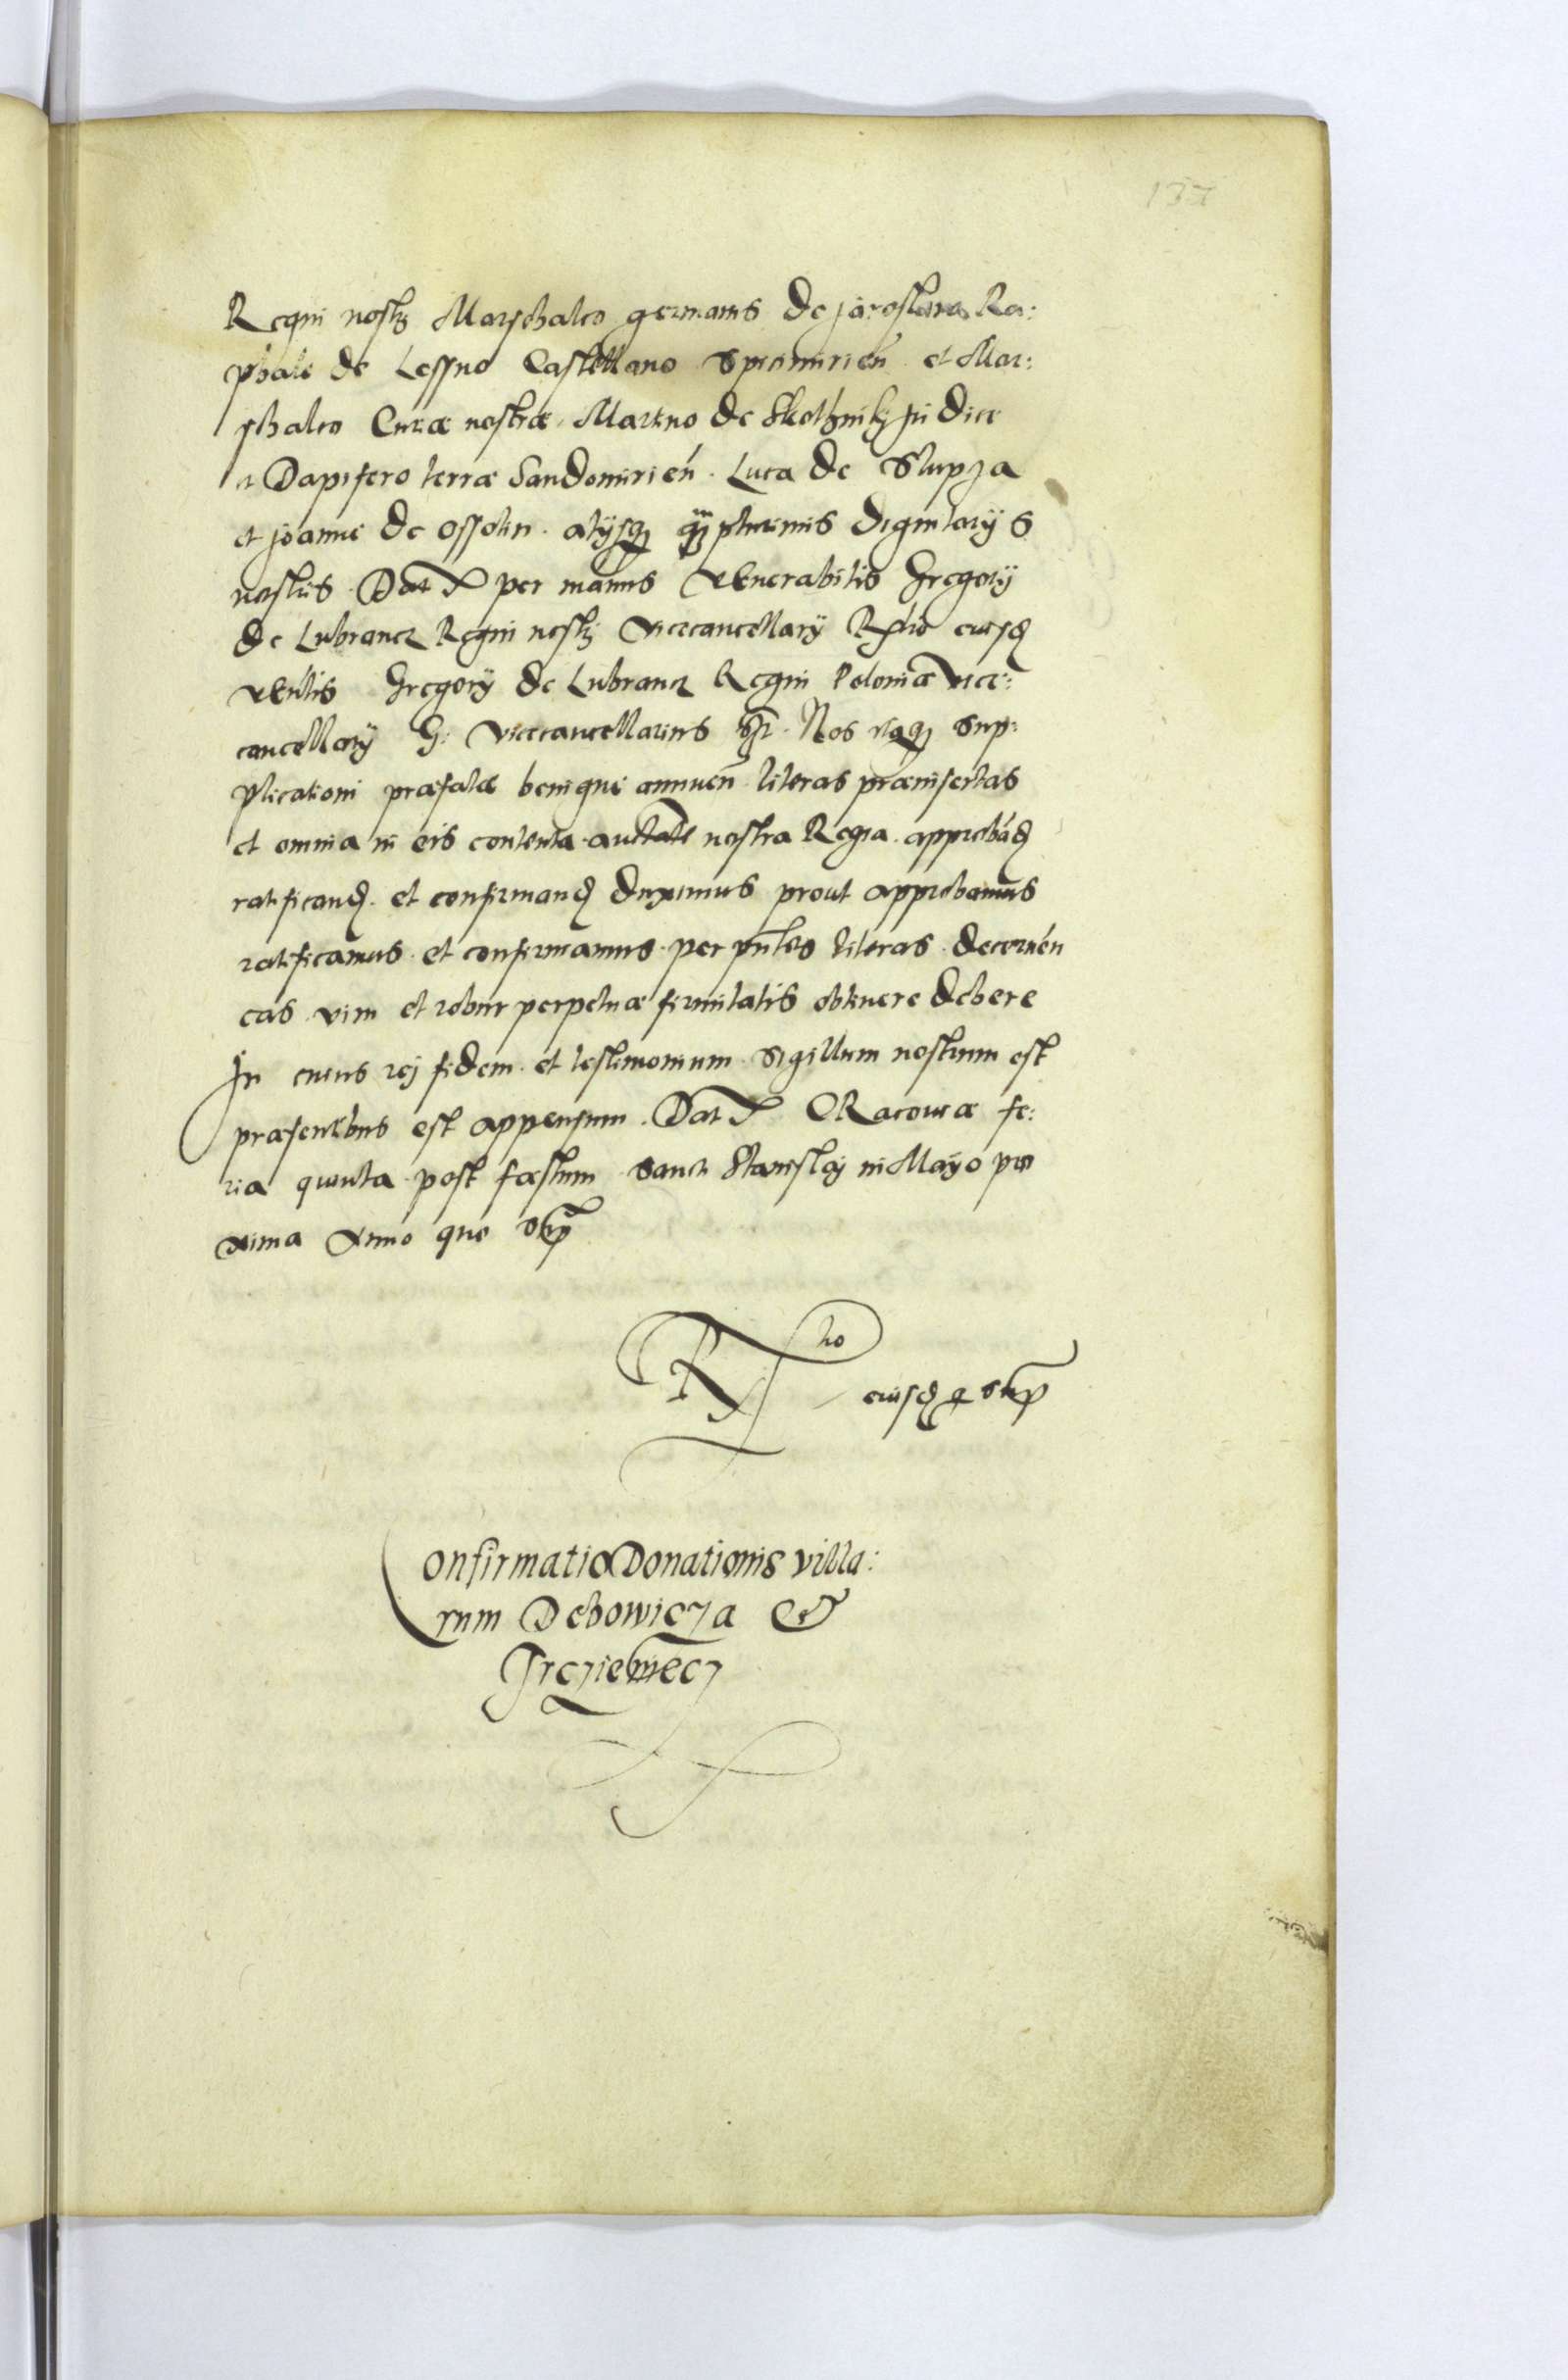 137
Regni nostri Marschalco germanis de Jaroslaw Ra:
phale de Lessno Castellano Spicimirien̄ et Mar:
schalco Curæ nostræ. Martino de Skothniky iudice
et Dapifero terræ Sandomirien̄. Luca de Slupza
et Joanne de Ossolin. alÿsq3 qm̄ plurimis dignitarÿs
nostris. Dat per manus Venerabilis Gregorÿ
de Lubrancz Regni nostri Vicecancellarÿ Rtio eiusd
Venlis Gregorÿ de Lubrancz Regni Poloniæ vice:
cancellarÿ G: vicecancellarius sst. Nos itaq3 sup:
plicationi præfatæ benigne annuen̄ literas præinsertas
et omnia in eis contenta auctate nostra Regia. approband
ratificand. et confirmand duximus prout approbamus
ratificamus. et confirmamus. per pn̄tes literas. decernen̄
eas vim et robur perpetuæ firmitatis obtinere debere
In cuius rej fidem. et testimonium. sigillum nostrum est
præsentibus est appensum. Dat CRacoviæ fe:
ria quinta post fæstum Sancti Stanislaj in Mayo pro
xima Anno quo sup
Rtio eiusd q sup
Confirmatio Donationis villa:
rum Debowicza et